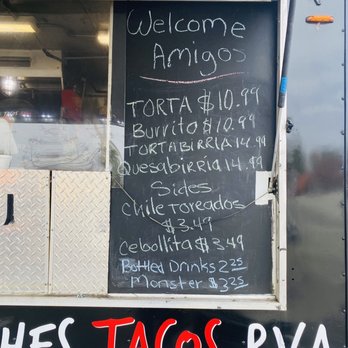 Welcome
Amigos
TORTA $10.99
Burrito $10.99
TORTABIRRIA 14.99
Quesabirria 14.99
Sides
Chile Toreados
$3.49
Cebollita $3.49
Bottled Drinks 2.25
Monster $3.25
HES TACOS RVA